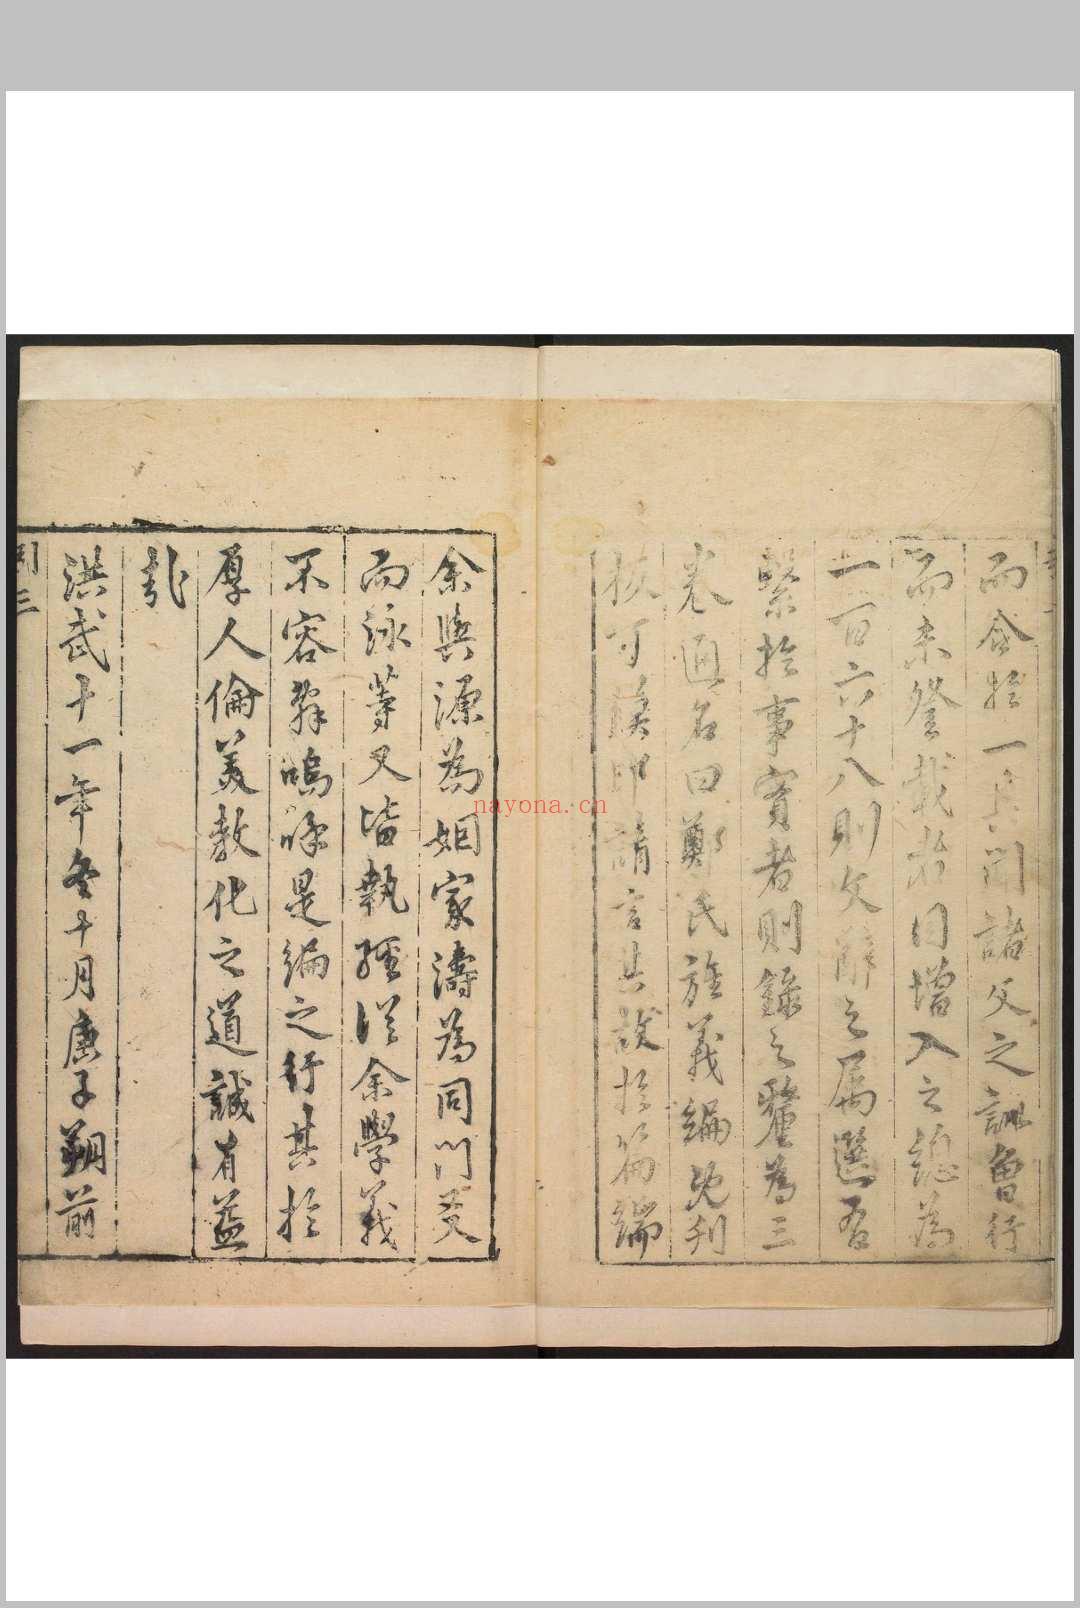 而合於一其聞諸父之訓曾行
而未登載者因增入之總為
一百六十八則文辭之屬選有
繫於事實者則錄之釐為三
卷通名曰鄭氏旌義編既刊
板可摸印請言其故於篇端
余與源為姻家濤為同門友
而泳等又皆執經從余學義
不容辭嗚呼是編之行其於
厚人倫美教化之道誠有益
哉
洪武十一年冬十月庚子朔前
三
nayona.cn